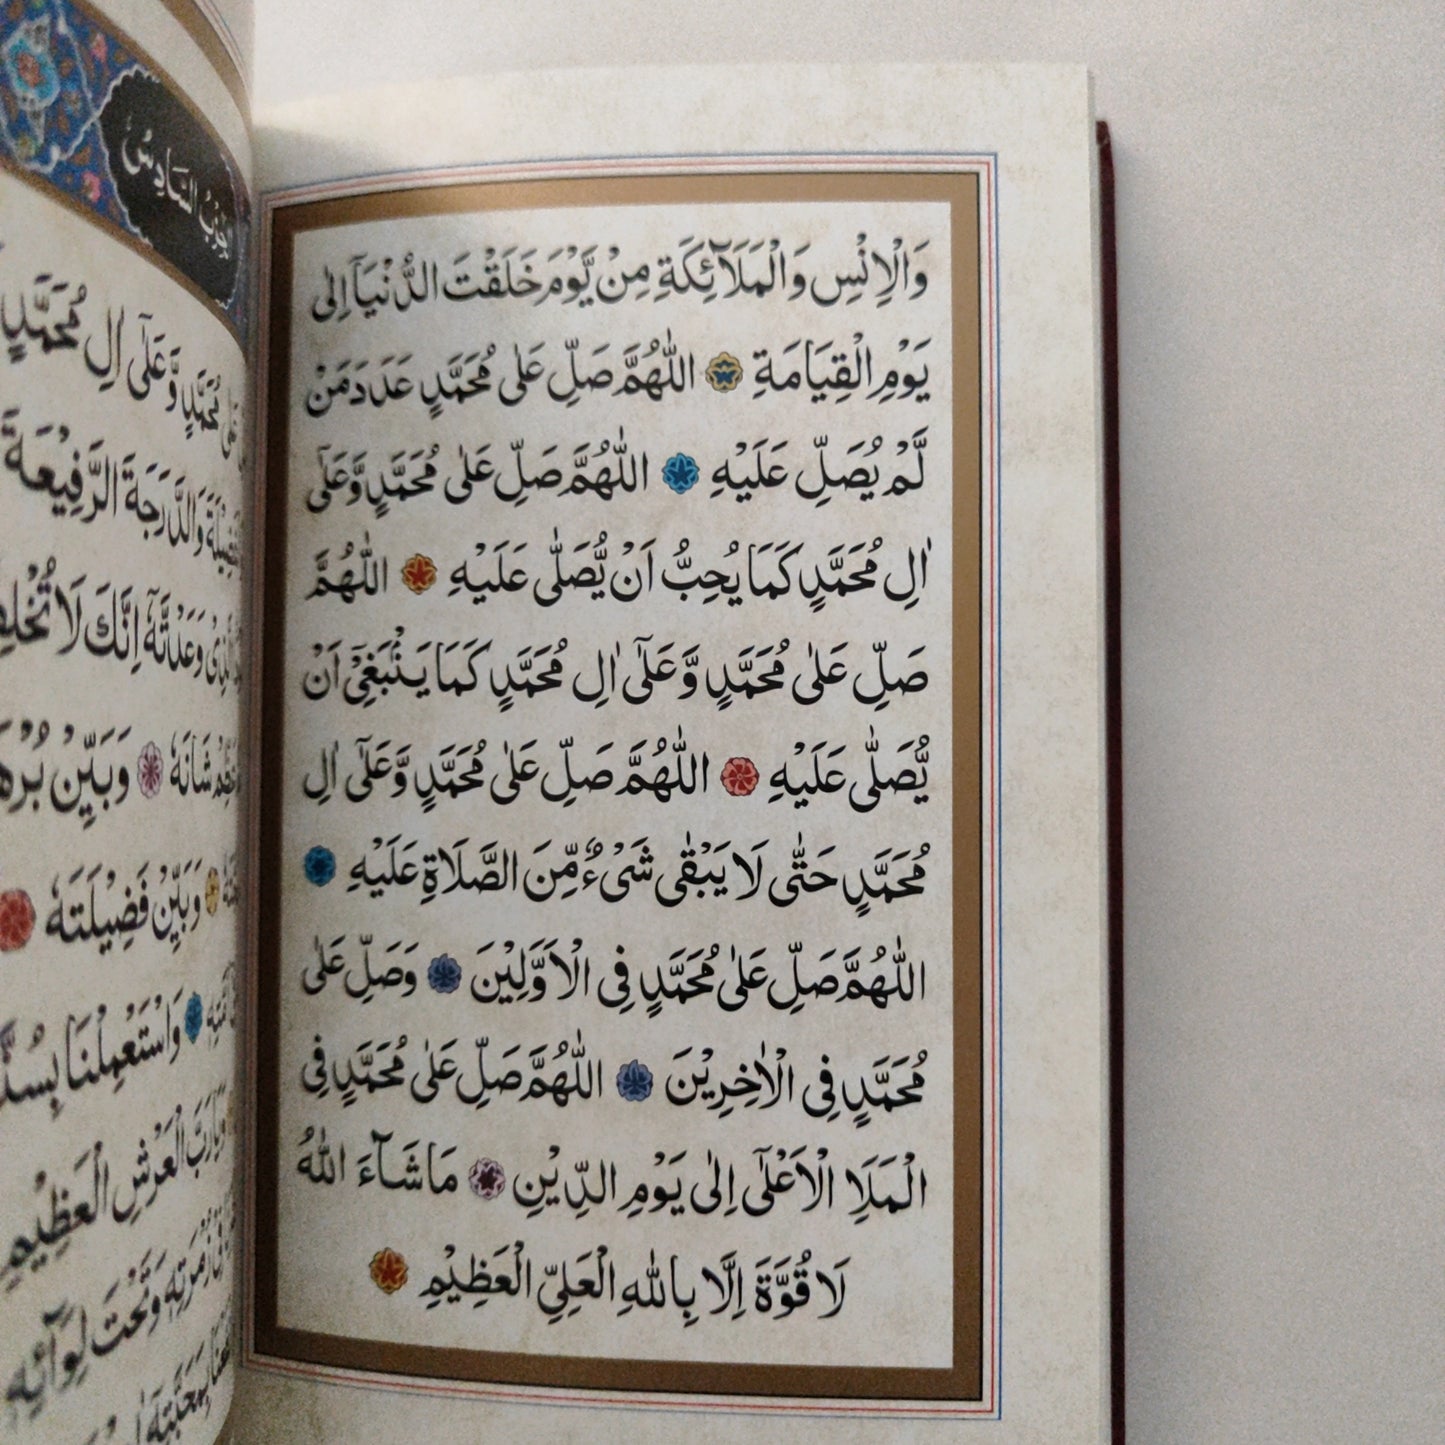 وَالْاِنْسِ وَالْمَلَآئِكَةِ مِنْ يَّوْمَ خَلَقْتَ الدُّنْيَآ اِلٰى
يَوْمِ الْقِيَامَةِ اَللّٰهُمَّ صَلِّ عَلٰى مُحَمَّدٍ عَدَدَ مَنْ
لَّمْ يُصَلِّ عَلَيْهِ اَللّٰهُمَّ صَلِّ عَلٰى مُحَمَّدٍ وَّعَلٰٓى
اٰلِ مُحَمَّدٍ كَمَا يُحِبُّ اَنْ يُّصَلّٰى عَلَيْهِ اَللّٰهُمَّ
صَلِّ عَلٰى مُحَمَّدٍ وَّعَلٰٓى اٰلِ مُحَمَّدٍ كَمَا يَنْۢبَغِيْٓ اَنْ
يُّصَلّٰى عَلَيْهِ اَللّٰهُمَّ صَلِّ عَلٰى مُحَمَّدٍ وَّعَلٰٓى اٰلِ
مُحَمَّدٍ حَتّٰى لَا يَبْقٰى شَيْءٌ مِّنَ الصَّلَاةِ عَلَيْهِ
اَللّٰهُمَّ صَلِّ عَلٰى مُحَمَّدٍ فِى الْاَوَّلِيْنَ وَصَلِّ عَلٰى
مُحَمَّدٍ فِى الْاٰخِرِيْنَ اَللّٰهُمَّ صَلِّ عَلٰى مُحَمَّدٍ فِى
الْمَلَاِ الْاَعْلٰٓى اِلٰى يَوْمِ الدِّيْنِ مَا شَآءَ اللّٰهُ
لَا قُوَّةَ اِلَّا بِاللّٰهِ الْعَلِيِّ الْعَظِيْمِ
حِزْبُ السَّادِسُ
مُحَمَّدٍ وَّعَلٰٓى اٰلِ مُحَمَّدٍ
وَالدَّرَجَةَ الرَّفِيْعَةَ
وَعَدْتَّهٗٓ اِنَّكَ لَا
شَانَهٗ وَبَيِّنْ
وَبَيِّنْ فَضِيْلَتَهٗ
وَاسْتَعْمِلْنَا
وَيَارَبَّ الْعَرْشِ الْعَظِيْمِ
زُمْرَتِهٖ وَتَحْتَ لِوَآئِهٖ